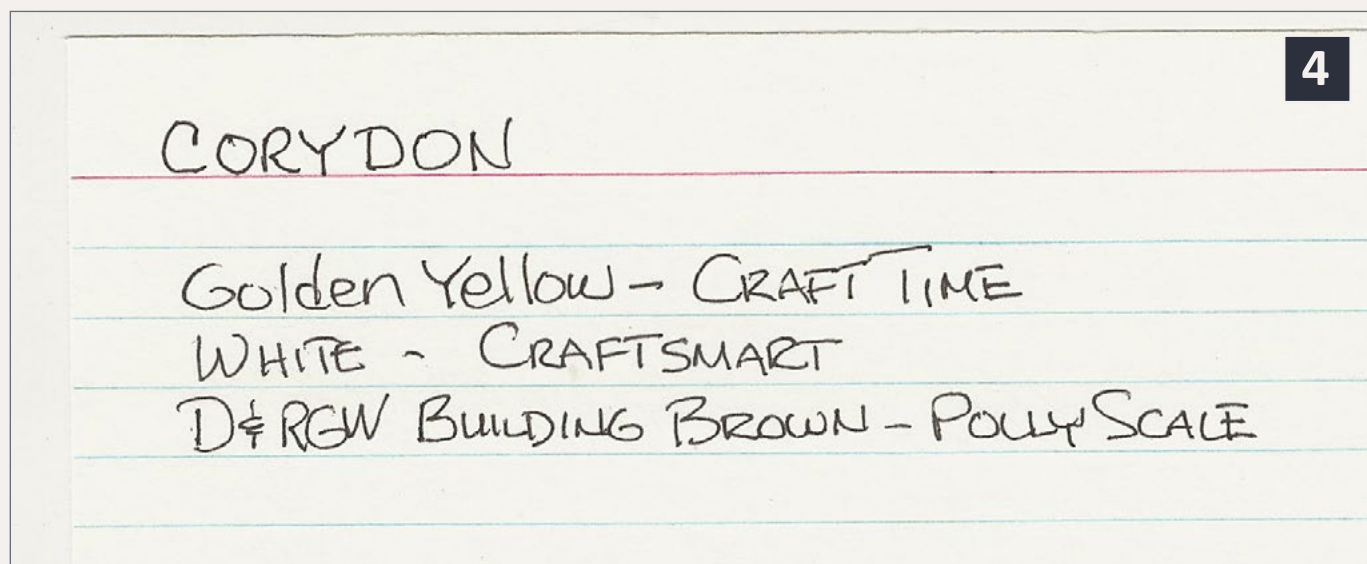 4
CORYDON
Golden Yellow - CRAFT TIME
WHITE - CRAFTSMART
D&RGW BUILDING BROWN - POLLYSCALE